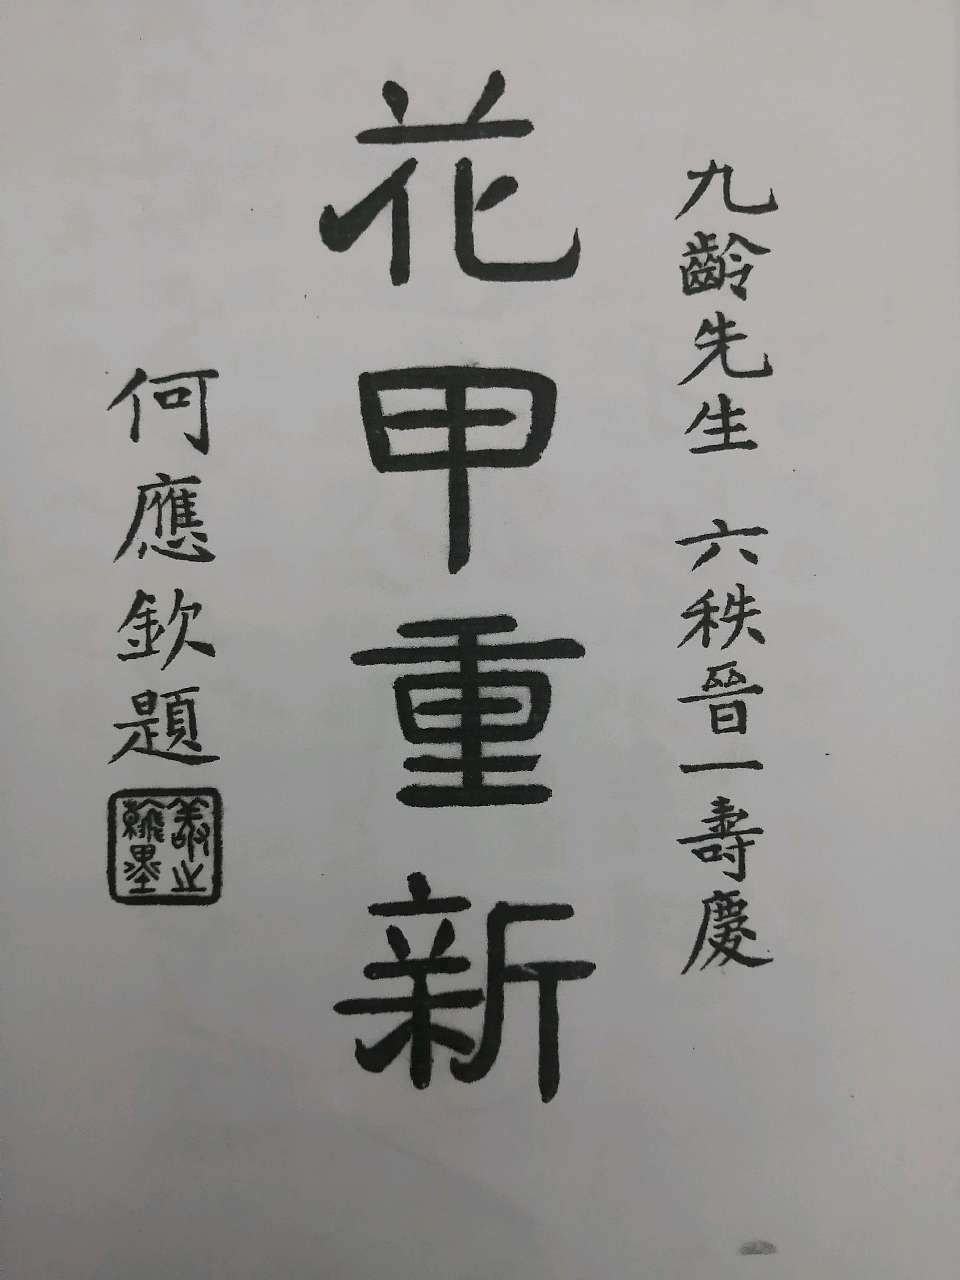 九齡先生 六秩晉一壽慶
花甲重新
何應欽題
敬之
翰墨